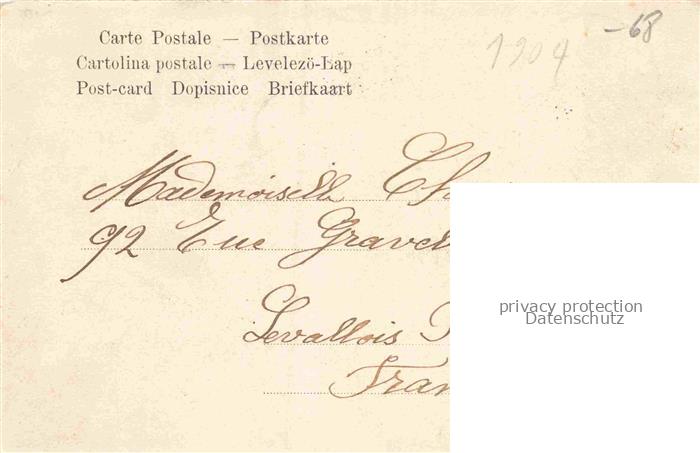 Carte Postale — Postkarte
Cartolina postale — Levelező-Lap
Post-card Dopisnice Briefkaart
1904
-68
Mademoiselle
92 Rue
Levallois
privacy protection
Datenschutz